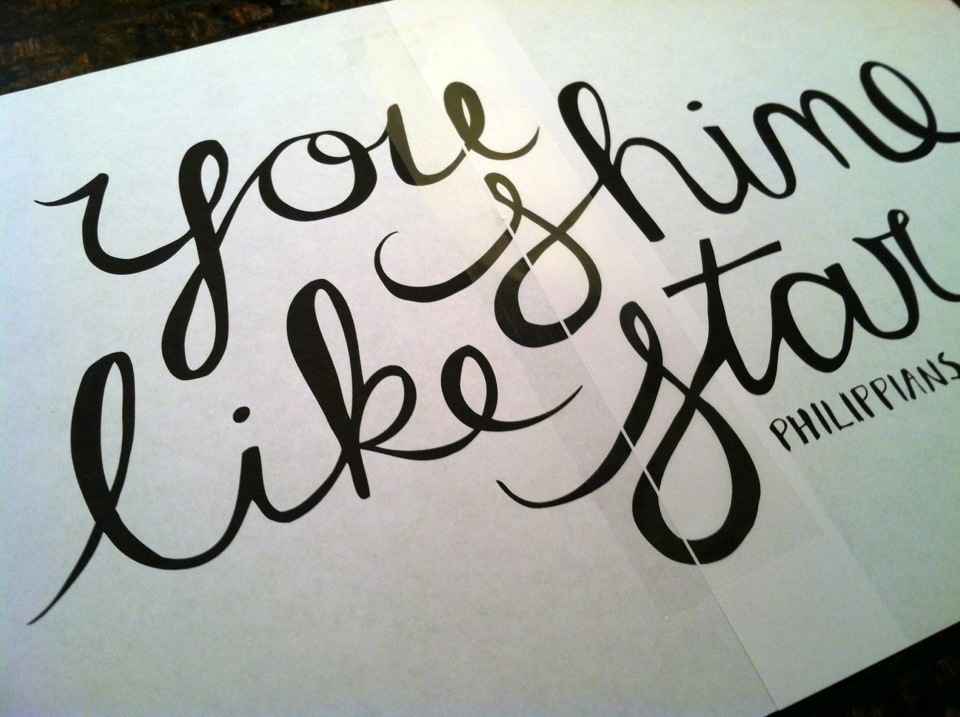 you shine
like star
PHILIPPIANS